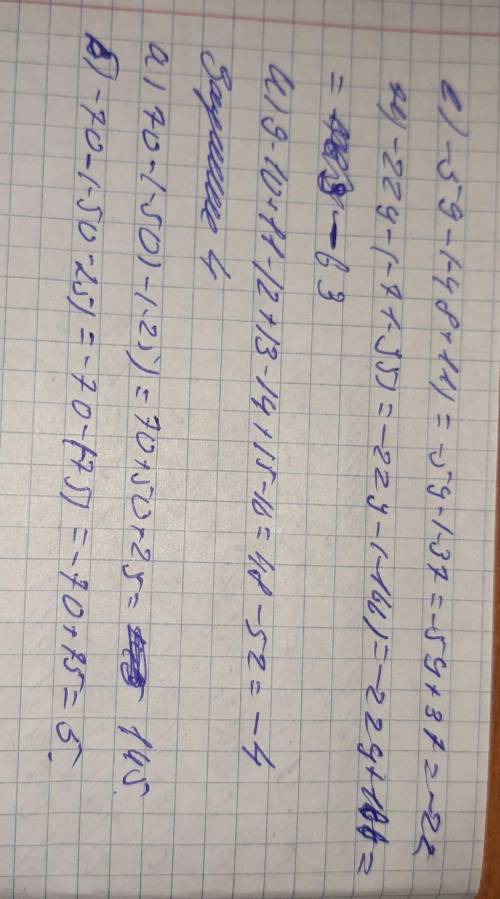 е) -59-(-48+11)=-59-(-37=-59+37=-22
ж) -229-(-7+-55)=-229-(-166)=-229+166=
= -63
и) 9-10+11-12+13-14+15-16=48-52=-4
Задание 4
а) 70-(-50)-(-25)=70+50+25= 145
б) -70-(-50-25)=-70-(-75)=-70+75=5.